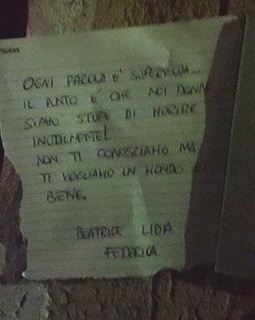 OGNI PAROLA E' SUPERFLUA...
IL PUNTO E' CHE NOI DONNE
SIAMO STUFE DI MORIRE
INUTILMENTE!
NON TI CONOSCIAMO MA
TI VOGLIAMO UN MONDO DI
BENE.
BEATRICE LIDIA
FEDERICA